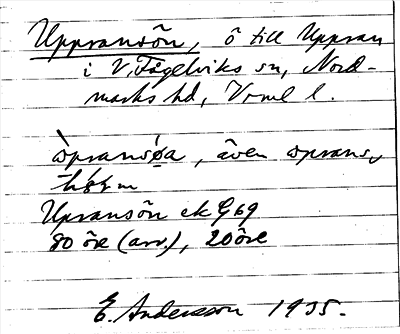 Uppransön, ö till Uppran
i V. Fågelviks sn, Nord-
marks hd, Vrml l.
òpransøa, även oprans,
Upransön ek G69
80 öre (arr.), 20 öre
E. Andersson 1935.